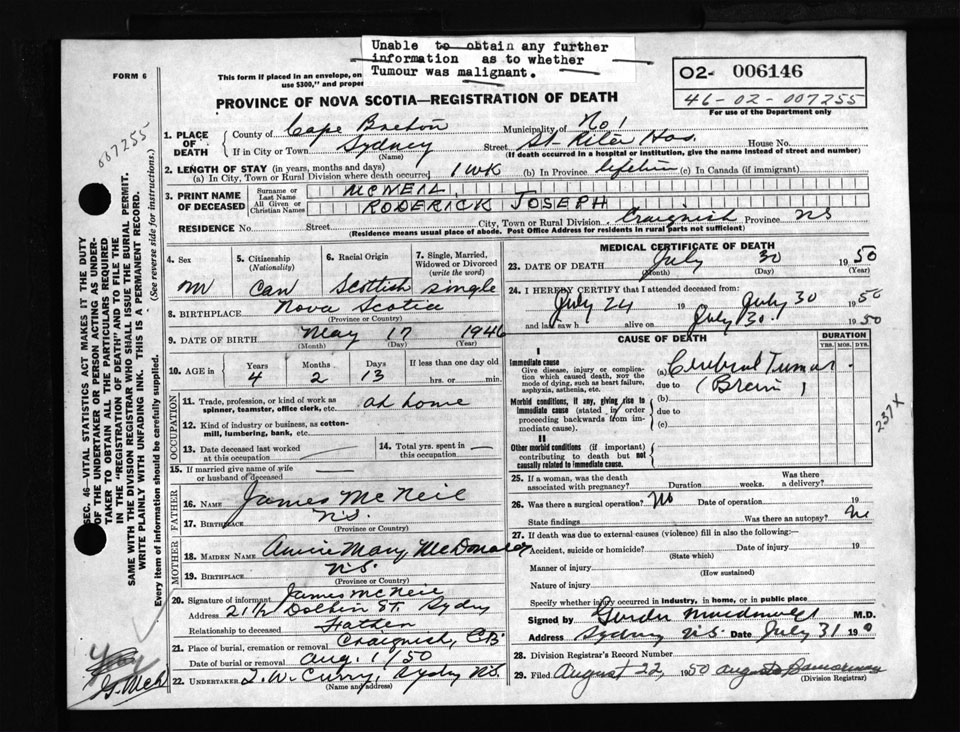 Unable to obtain any further
information as to whether
Tumour was malignant.
FORM 6
This form if placed in an envelope, on
use $300," and proper
02- 006146
46-02-007255
For use of the Department only
PROVINCE OF NOVA SCOTIA—REGISTRATION OF DEATH
007255
1. PLACE OF DEATH
County of Cape Breton Municipality of No 1
If in City or Town Sydney Street St. Rita Hos. House No.
(Name) (If death occurred in a hospital or institution, give the name instead of street and number)
2. LENGTH OF STAY (in years, months and days)
(a) In City, Town or Rural Division where death occurred 1 WK (b) In Province lifetime (c) In Canada (if immigrant)
3. PRINT NAME OF DECEASED
Surname or Last Name MCNEIL
All Given or Christian Names RODERICK JOSEPH
RESIDENCE No. Street City, Town or Rural Division Craignish Province NS
(Residence means usual place of abode. Post Office Address for residents in rural parts not sufficient)
4. Sex M
5. Citizenship (Nationality) Can
6. Racial Origin Scottish
7. Single, Married, Widowed or Divorced (write the word) single
8. BIRTHPLACE Nova Scotia
(Province or Country)
9. DATE OF BIRTH May 17 1946
(Month) (Day) (Year)
10. AGE in Years 4 Months 2 Days 13 If less than one day old hrs. or min.
OCCUPATION
11. Trade, profession, or kind of work as spinner, teamster, office clerk, etc. at home
12. Kind of industry or business, as cotton-mill, lumbering, bank, etc.
13. Date deceased last worked at this occupation
14. Total yrs. spent in this occupation
15. If married give name of wife or husband of deceased
FATHER
16. NAME James McNeil
17. BIRTHPLACE N.S.
(Province or Country)
MOTHER
18. MAIDEN NAME Annie Mary McDonald
19. BIRTHPLACE N.S.
(Province or Country)
20. Signature of informant James McNeil
Address 21½ Dolbin St. Sydney
Relationship to deceased Father
21. Place of burial, cremation or removal Craignish, CB
Date of burial or removal Aug. 1/50
22. UNDERTAKER T. W. Curry, Sydney NS.
(Name and address)
MEDICAL CERTIFICATE OF DEATH
23. DATE OF DEATH July 30 1950
(Month) (Day) (Year)
24. I HEREBY CERTIFY that I attended deceased from:
July 24 19 July 30 1950
and last saw h alive on July 30. 1950
CAUSE OF DEATH DURATION
YRS. MOS. DYS.
I
Immediate cause
Give disease, injury or complication which caused death, not the mode of dying, such as heart failure, asphyxia, asthenia, etc.
(a) Cerebral Tumor
due to (Brain)
Morbid conditions, if any, giving rise to immediate cause (stated in order proceeding backwards from immediate cause).
(b)
due to
(c)
237X
II
Other morbid conditions (if important) contributing to death but not causally related to immediate cause.
25. If a woman, was the death associated with pregnancy? Duration weeks. Was there a delivery?
26. Was there a surgical operation? No Date of operation 19
State findings Was there an autopsy? No
27. If death was due to external causes (violence) fill in also the following:—
Accident, suicide or homicide? Date of injury 19
(State which)
Manner of injury
(How sustained)
Nature of injury
Specify whether injury occurred in industry, in home, or in public place
Signed by Gordon Macdonald M.D.
Address Sydney N.S. Date July 31 19
28. Division Registrar's Record Number
29. Filed August 22, 1950
(Division Registrar)
SEC. 46—VITAL STATISTICS ACT MAKES IT THE DUTY
OF THE UNDERTAKER OR PERSON ACTING AS UNDER-
TAKER TO OBTAIN ALL THE PARTICULARS REQUIRED
IN THE "REGISTRATION OF DEATH" AND TO FILE THE
SAME WITH THE DIVISION REGISTRAR WHO SHALL ISSUE THE BURIAL PERMIT.
WRITE PLAINLY WITH UNFADING INK. THIS IS A PERMANENT RECORD.
Every item of information should be carefully supplied. (See reverse side for instructions.)